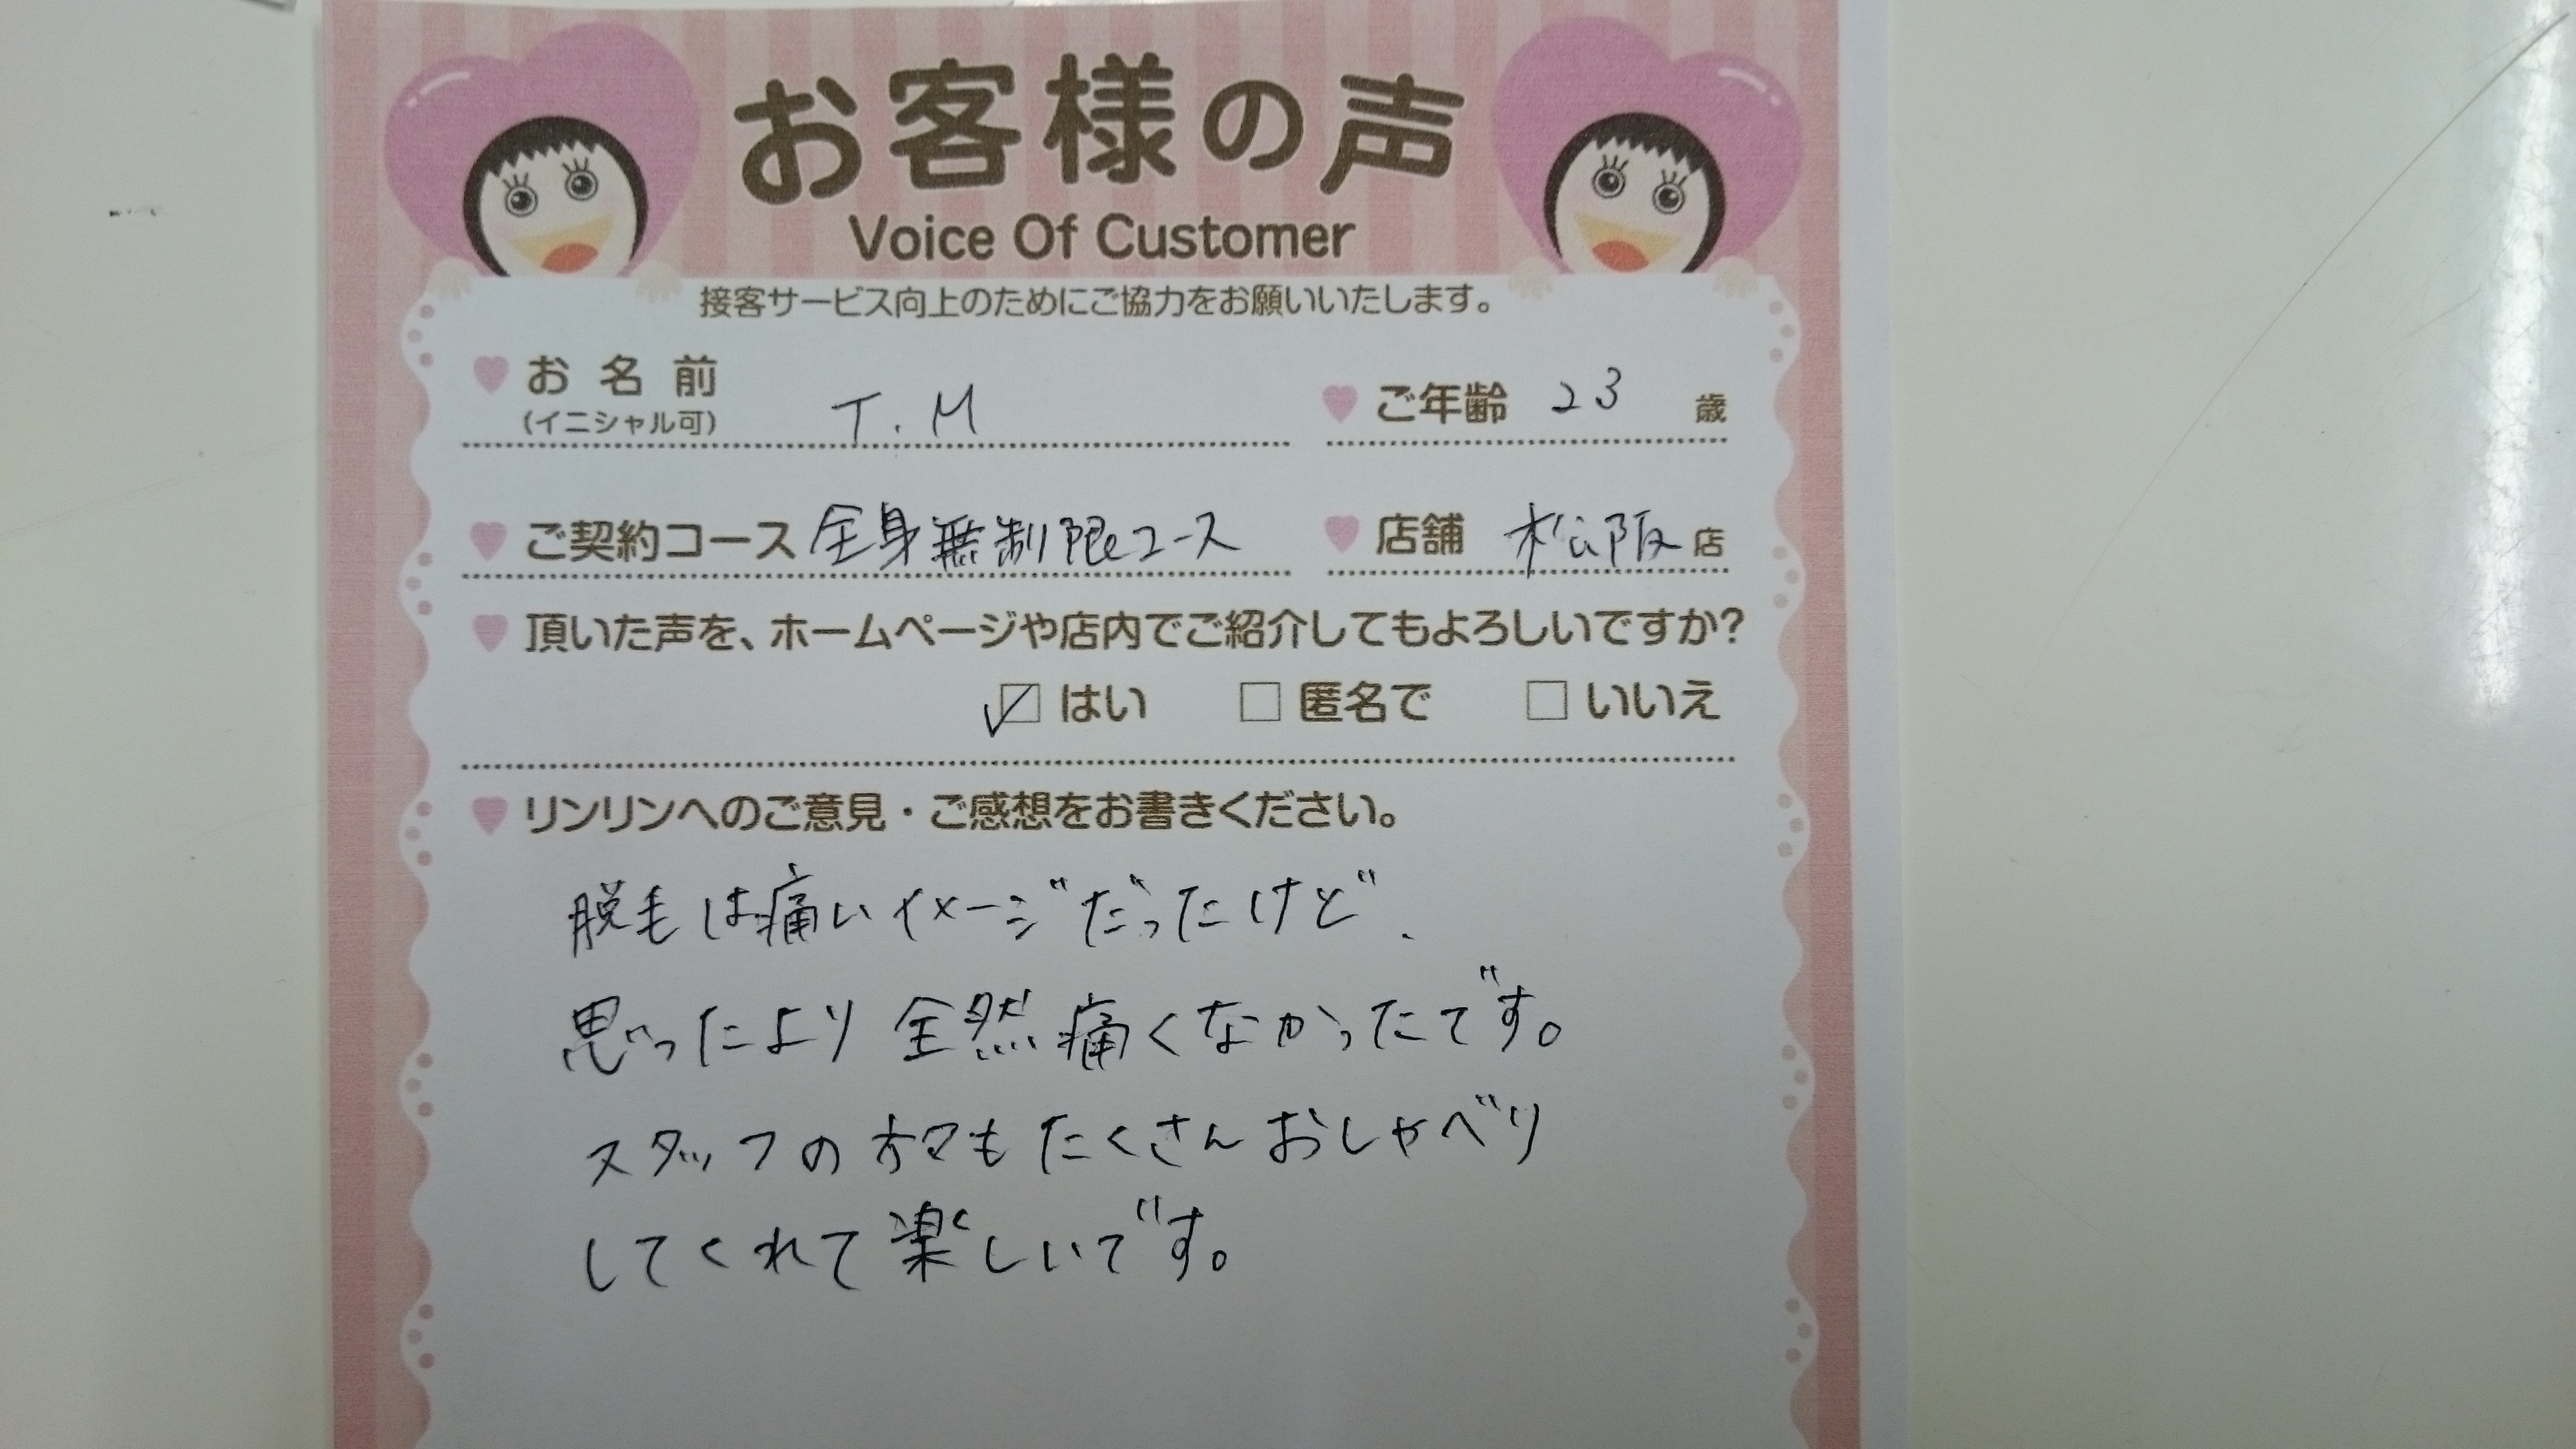 お客様の声
Voice Of Customer
接客サービス向上のためにご協力をお願いいたします。
お名前 T.M ご年齢 23 歳
(イニシャル可)
ご契約コース 全身無制限コース 店舗 松阪店
頂いた声を、ホームページや店内でご紹介してもよろしいですか?
はい 匿名で いいえ
リンリンへのご意見・ご感想をお書きください。
脱毛は痛いイメージだったけど、
思ったより全然痛くなかったです。
スタッフの方々もたくさんおしゃべり
してくれて楽しいです。